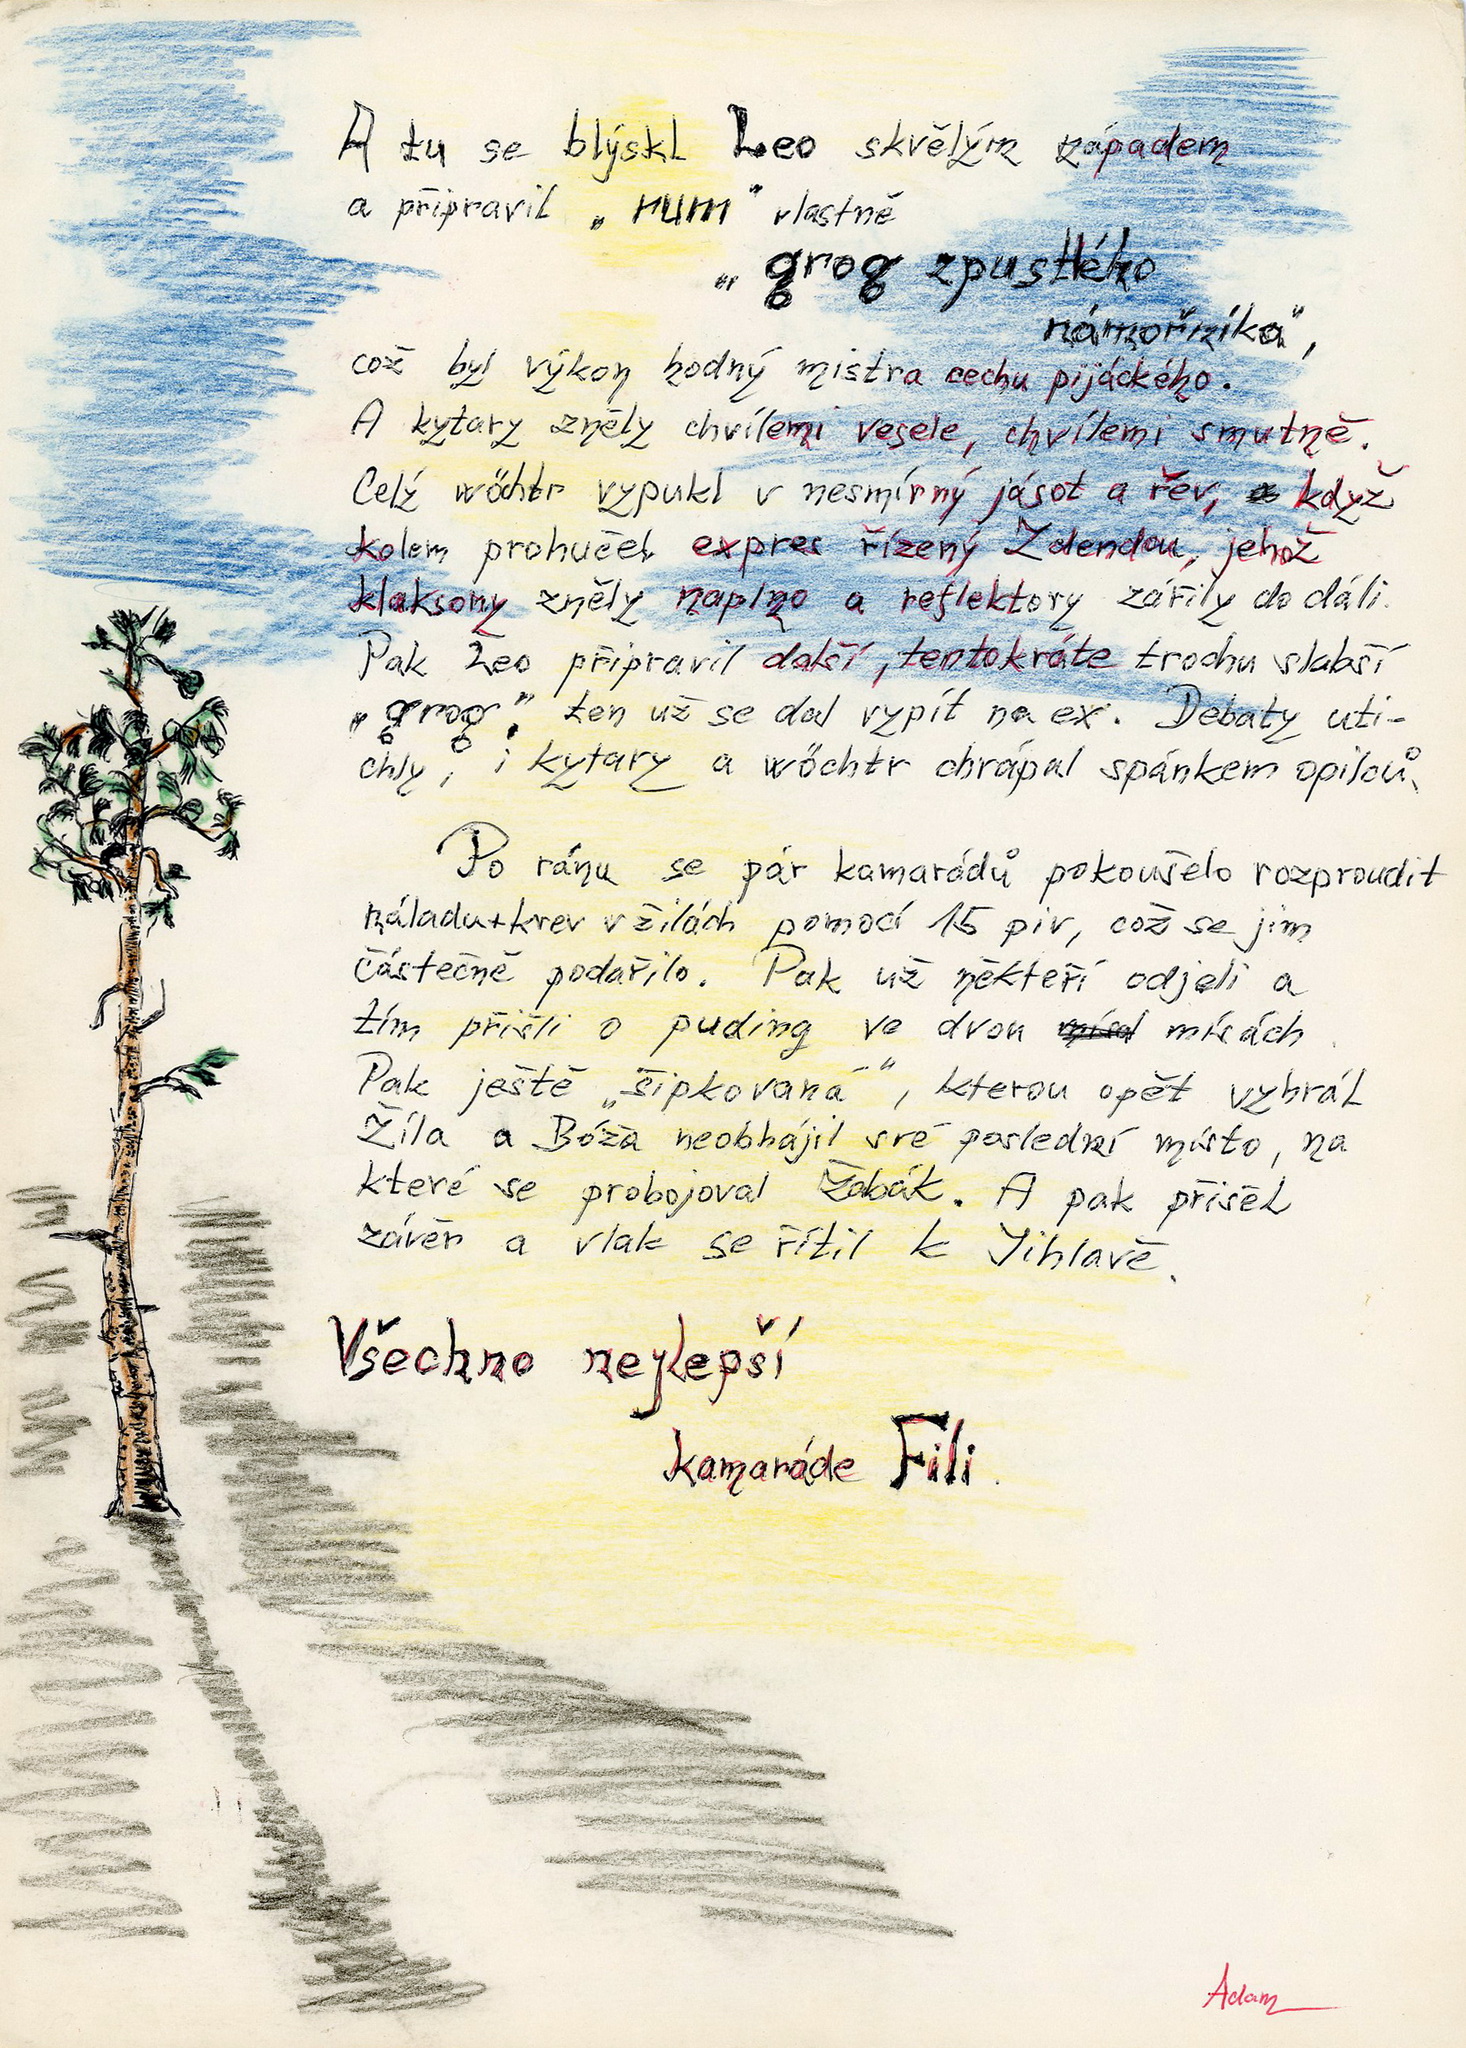 A tu se blýskl Leo skvělým nápadem
a připravil „rum" vlastně
„grog zpustlého
námořníka",
což byl výkon hodný mistra cechu pijáckého.
A kytary zněly chvílemi vesele, chvílemi smutně.
Celý wöchtr vypukl v nesmírný jásot a řev, když
kolem prohučel expres řízený Zdendou, jehož
klaksony zněly naplno a reflektory zářily do dáli.
Pak Leo připravil další, tentokráte trochu slabší
„grog", ten už se dal vypít na ex. Debaty uti-
chly, i kytary a wöchtr chrápal spánkem opilců.
Po ránu se pár kamarádů pokoušelo rozproudit
náladu+krev v žilách pomocí 15 piv, což se jim
částečně podařilo. Pak už někteří odjeli a
tím přišli o puding ve dvou mísách.
Pak ještě „šipkovaná", kterou opět vyhrál
Žíla a Bóža neobhájil své poslední místo, na
které se probojoval Žobák. A pak přišel
závěr a vlak se řítil k Jihlavě.
Všechno nejlepší
kamaráde Fili.
Adam